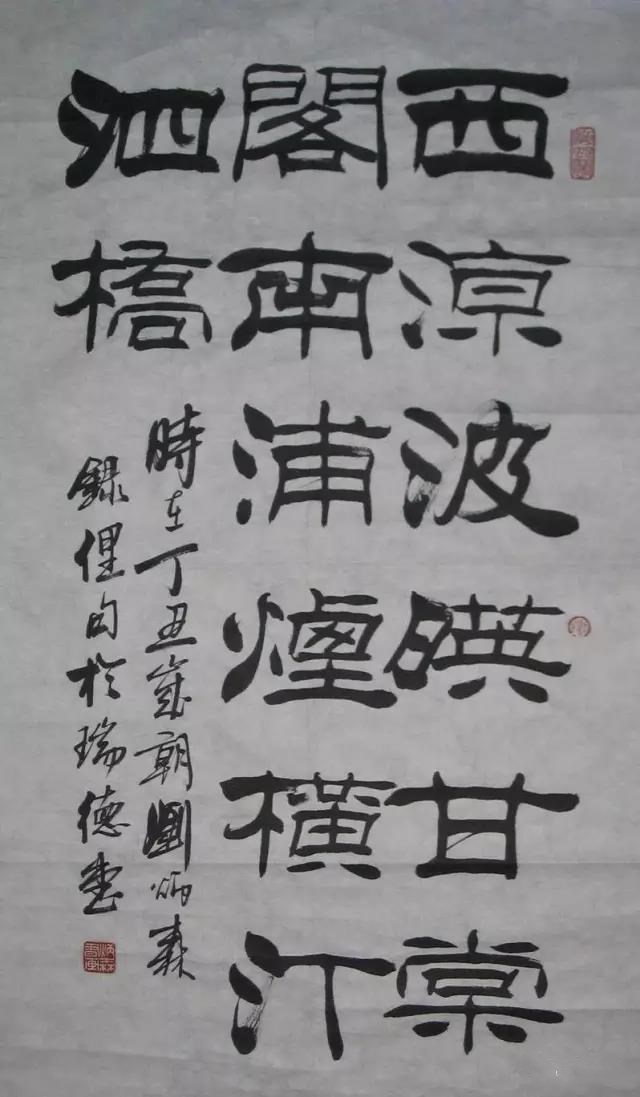 西凉波暎甘棠
閣南浦煙橫汀
泗橋
時在丁丑歲朝劉炳森
錄俚句於瑞德堂